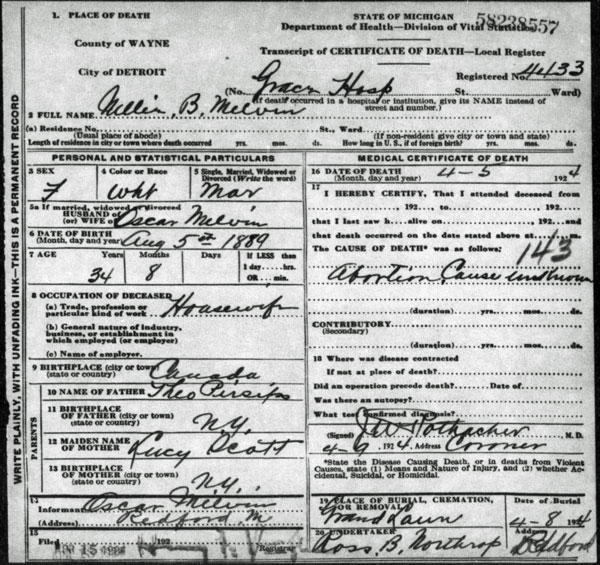 1. PLACE OF DEATH
County of WAYNE
City of DETROIT
STATE OF MICHIGAN
58238557
Department of Health—Division of Vital Statistics
Transcript of CERTIFICATE OF DEATH—Local Register
Registered No. 4433
(No. Grace Hosp St. Ward)
(If death occurred in a hospital or institution, give its NAME instead of street and number.)
2 FULL NAME. Nellie. B. Melvin
(a) Residence No. St., Ward.
(Usual place of abode) (If non-resident give city or town and state)
Length of residence in city or town where death occurred yrs. mos. ds. How long in U. S., if of foreign birth? yrs. mos. ds.
WRITE PLAINLY, WITH UNFADING INK—THIS IS A PERMANENT RECORD
PERSONAL AND STATISTICAL PARTICULARS
3 SEX
F
4 Color or Race
Wht
5 Single, Married, Widowed or Divorced (Write the word)
Mar
5a If married, widowed or divorced
HUSBAND of
(or) WIFE of Oscar Melvin
6 DATE OF BIRTH
(Month, day and year) Aug 5th 1889
7 AGE Years Months Days If LESS than
1 day.....hrs.
OR.....min.
34 8
8 OCCUPATION OF DECEASED
(a) Trade, profession or particular kind of work Housewife
(b) General nature of Industry, business, or establishment in which employed (or employer)
(c) Name of employer.
9 BIRTHPLACE (city or town) (state or country) Canada
PARENTS
10 NAME OF FATHER Theo
11 BIRTHPLACE OF FATHER (city or town) (state or country) N.Y.
12 MAIDEN NAME OF MOTHER Lucy Scott
13 BIRTHPLACE OF MOTHER (state or country) N.Y.
Informant Oscar Melvin
(Address)
15
Filed 192
Registrar
MEDICAL CERTIFICATE OF DEATH
16 DATE OF DEATH
(Month, day and year) 4-5 1924
17
I HEREBY CERTIFY, That I attended deceased from
, 192...., to , 192....
that I last saw h....alive on , 192....and
that death occurred on the date stated above at m.
The CAUSE OF DEATH* was as follows:
143
Abortion Cause unknown
(duration) yrs. mos. ds.
CONTRIBUTORY
(Secondary)
(duration) yrs. mos. ds.
18 Where was disease contracted
If not at place of death?
Did an operation precede death? Date of
Was there an autopsy?
What test confirmed diagnosis?
(Signed) J W Rothacher M. D.
4-9 1924 Address Coroner
*State the Disease Causing Death, or in deaths from Violent Causes, state (1) Means and Nature of Injury, and (2) whether Accidental, Suicidal, or Homicidal.
19 PLACE OF BURIAL, CREMATION, OR REMOVAL
Grand Lawn
Date of Burial
4-8 1924
20 UNDERTAKER
Ross. B. Northrop
Address
Redford